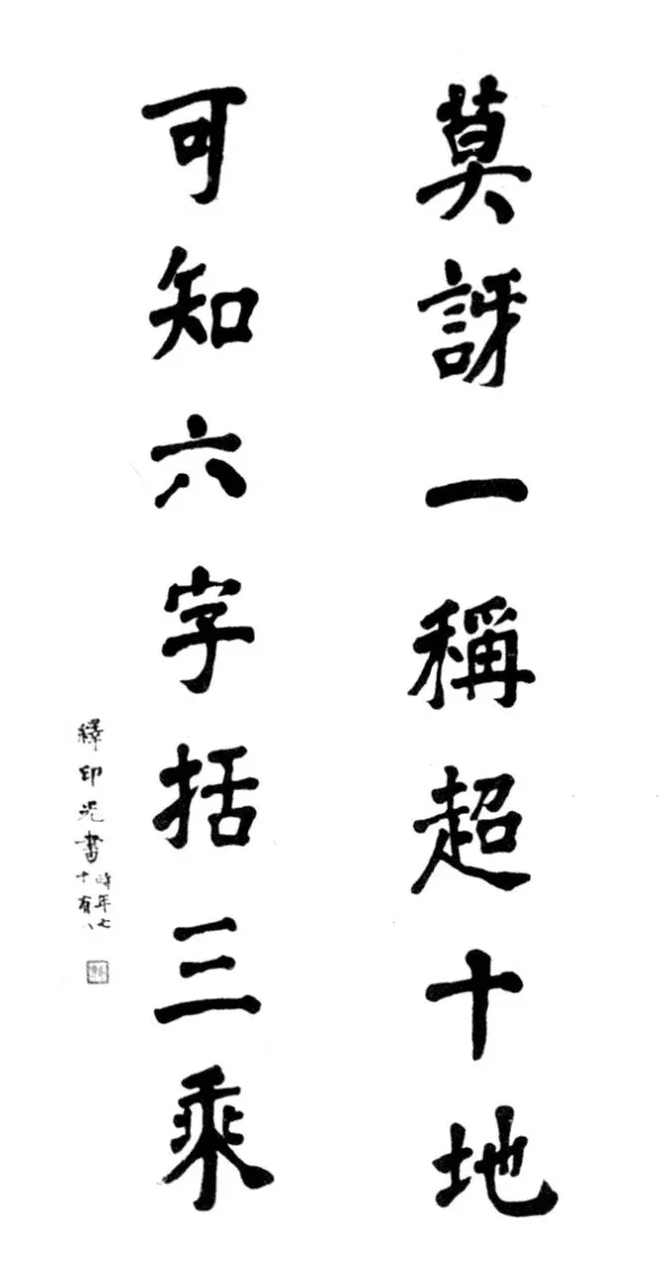 莫訝一稱超十地
可知六字括三乘
釋印光書
時年七
十有八